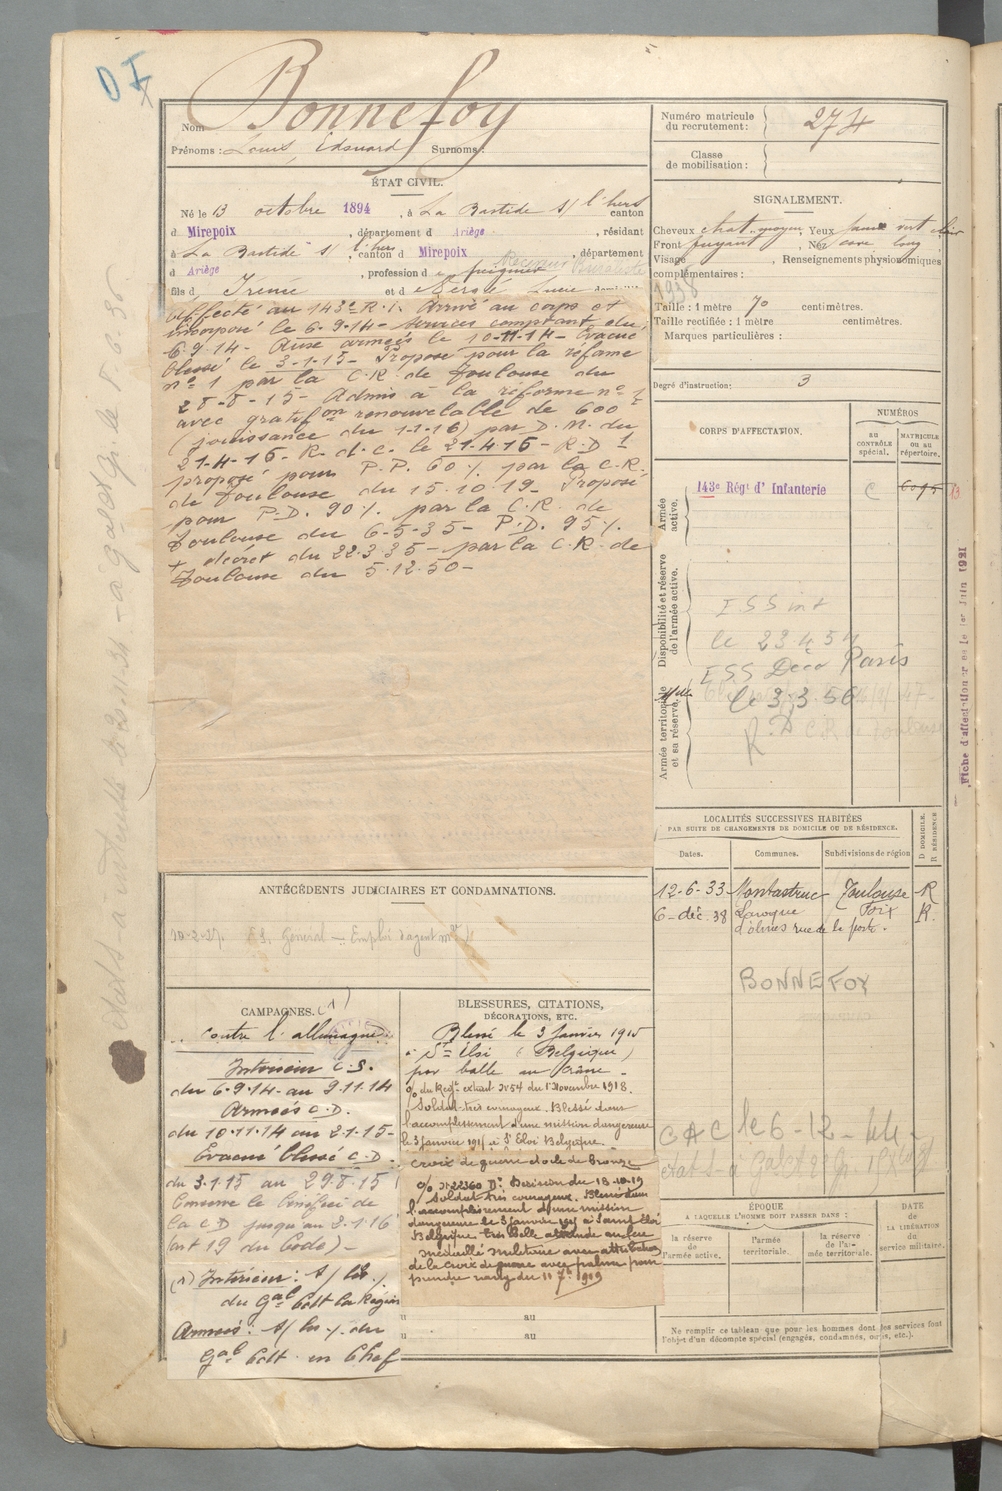 Bonnefoy
Nom
Prénoms : Louis, Edouard Surnoms :
ÉTAT CIVIL.
Né le 13 octobre 1894, à La Bastide s/ l'hers canton
d Mirepoix, département d Ariège, résidant
à La Bastide s/ l'hers, canton d Mirepoix, département
d Ariège, profession de peignier Receveur Buraliste
fils d Irénée et d Lucie
Affecté au 143e R.I. Arrivé au corps et
incorporé le 6.9.14 - Services comptant du
6.9.14 - Aux armées le 10-11-14 - Evacué
blessé le 3-1-15 - Proposé pour la réforme
n° 1 par la C.R. de Toulouse du
28-8-15 - Admis à la réforme n° 1
avec gratifon renouvelable de 600
(jouissance du 1-1-16) par D.M. du
21-4-16 - R. d. c. le 21-4-16 - R.D 1
proposé pour P.P. 60 % par la C.R.
de Toulouse du 15.10.19 - Proposé
pour P.D. 90 % par la C.R. de
Toulouse du 6-5-35 - P.D. 95 %
+ décret du 22.3.35 - par la C.R. de
Toulouse du 5.12.50 -
ANTÉCÉDENTS JUDICIAIRES ET CONDAMNATIONS.
E.S. Général - Emploi d'agent
CAMPAGNES. (1)
contre l'allemagne
Intérieur C.S.
du 6.9.14 au 9.11.14
Armées C.D.
du 10.11.14 au 2-1-15 -
Evacué blessé C.D.
du 3.1.15 au 29.8.15
Conserve le bénéfice de
la C D jusqu'au 3-1-16
(art 19 du Code) -
(1) Intérieur : s/
du Gal Cdt la Région
Armées : s/ du
Gal Cdt en Chef
BLESSURES, CITATIONS,
DÉCORATIONS, ETC.
Blessé le 3 Janvier 1915
à St Eloi (Belgique)
par balle au crâne -
o/ du Regt extrait N° 54 du 1 Novembre 1918.
Soldat très courageux. Blessé dans
l'accomplissement d'une mission dangereuse
le 3 Janvier 1915 à St Eloi Belgique.
Croix de guerre étoile de bronze
o/ N° 22360 D. Décision du 18-10-19
Soldat très courageux. Blessé dans
l'accomplissement d'une mission
dangereuse le 3 Janvier 1915 à Saint Eloi
Belgique très belle attitude au feu
médaille militaire avec attribution
de la croix de guerre avec palme pour
prendre rang du 11 7bre 1919
au
au
Numéro matricule
du recrutement : 274
Classe
de mobilisation :
SIGNALEMENT.
Cheveux chat. moyen, Yeux vert clair
Front fuyant, Nez cave long
Visage, Renseignements physionomiques
complémentaires :
1938
Taille : 1 mètre 70 centimètres.
Taille rectifiée : 1 mètre centimètres.
Marques particulières :
Degré d'instruction : 3
CORPS D'AFFECTATION.
NUMÉROS
AU CONTRÔLE spécial.
MATRICULE ou au répertoire.
Armée active.
143e Régt d' Infanterie
C
Disponibilité et réserve de l'armée active.
ESS int
le 23 4 54
ESS Paris
le 3.3.56
Armée territoriale et sa réserve.
C.R. de Toulouse
Fiche d'affectation le 1er Juin 1921
LOCALITÉS SUCCESSIVES HABITÉES
PAR SUITE DE CHANGEMENTS DE DOMICILE OU DE RÉSIDENCE.
Dates. Communes. Subdivisions de région D DOMICILE. R RÉSIDENCE
12-6-33 Montastruc Toulouse R
6-déc.38 Laroque Foix R.
d'olmes rue de la poste.
BONNEFOY
le 6-12-
ÉPOQUE
A LAQUELLE L'HOMME DOIT PASSER DANS :
la réserve de l'armée active.
l'armée territoriale.
la réserve de l'armée territoriale.
DATE de LA LIBÉRATION du service militaire.
Ne remplir ce tableau que pour les hommes dont les services font
l'objet d'un décompte spécial (engagés, condamnés, omis, etc.).